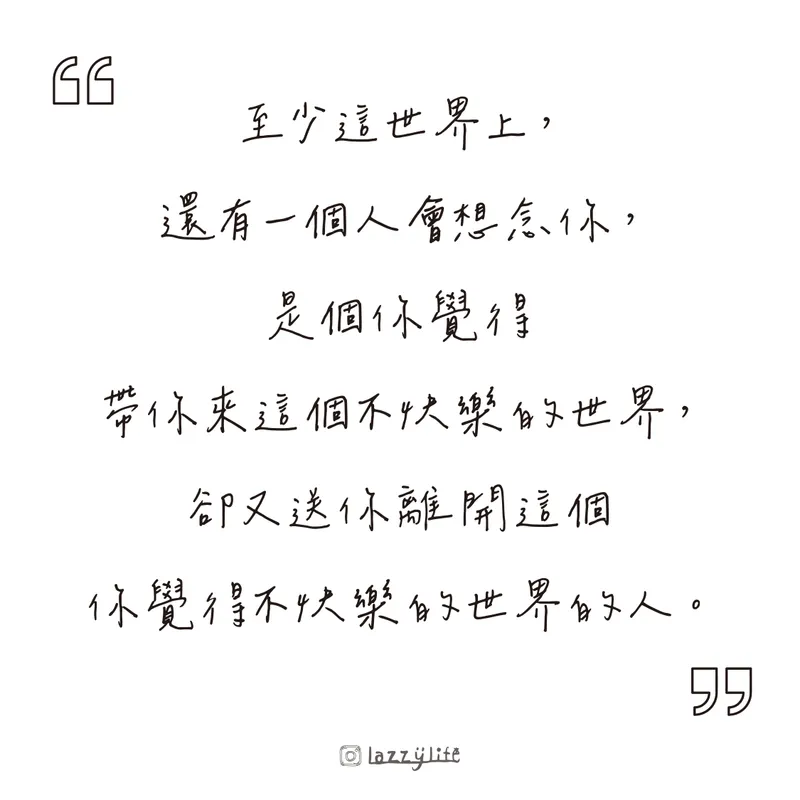 至少這世界上，
還有一個人會想念你，
是個你覺得
帶你來這個不快樂的世界，
卻又送你離開這個
你覺得不快樂的世界的人。
lazzylife